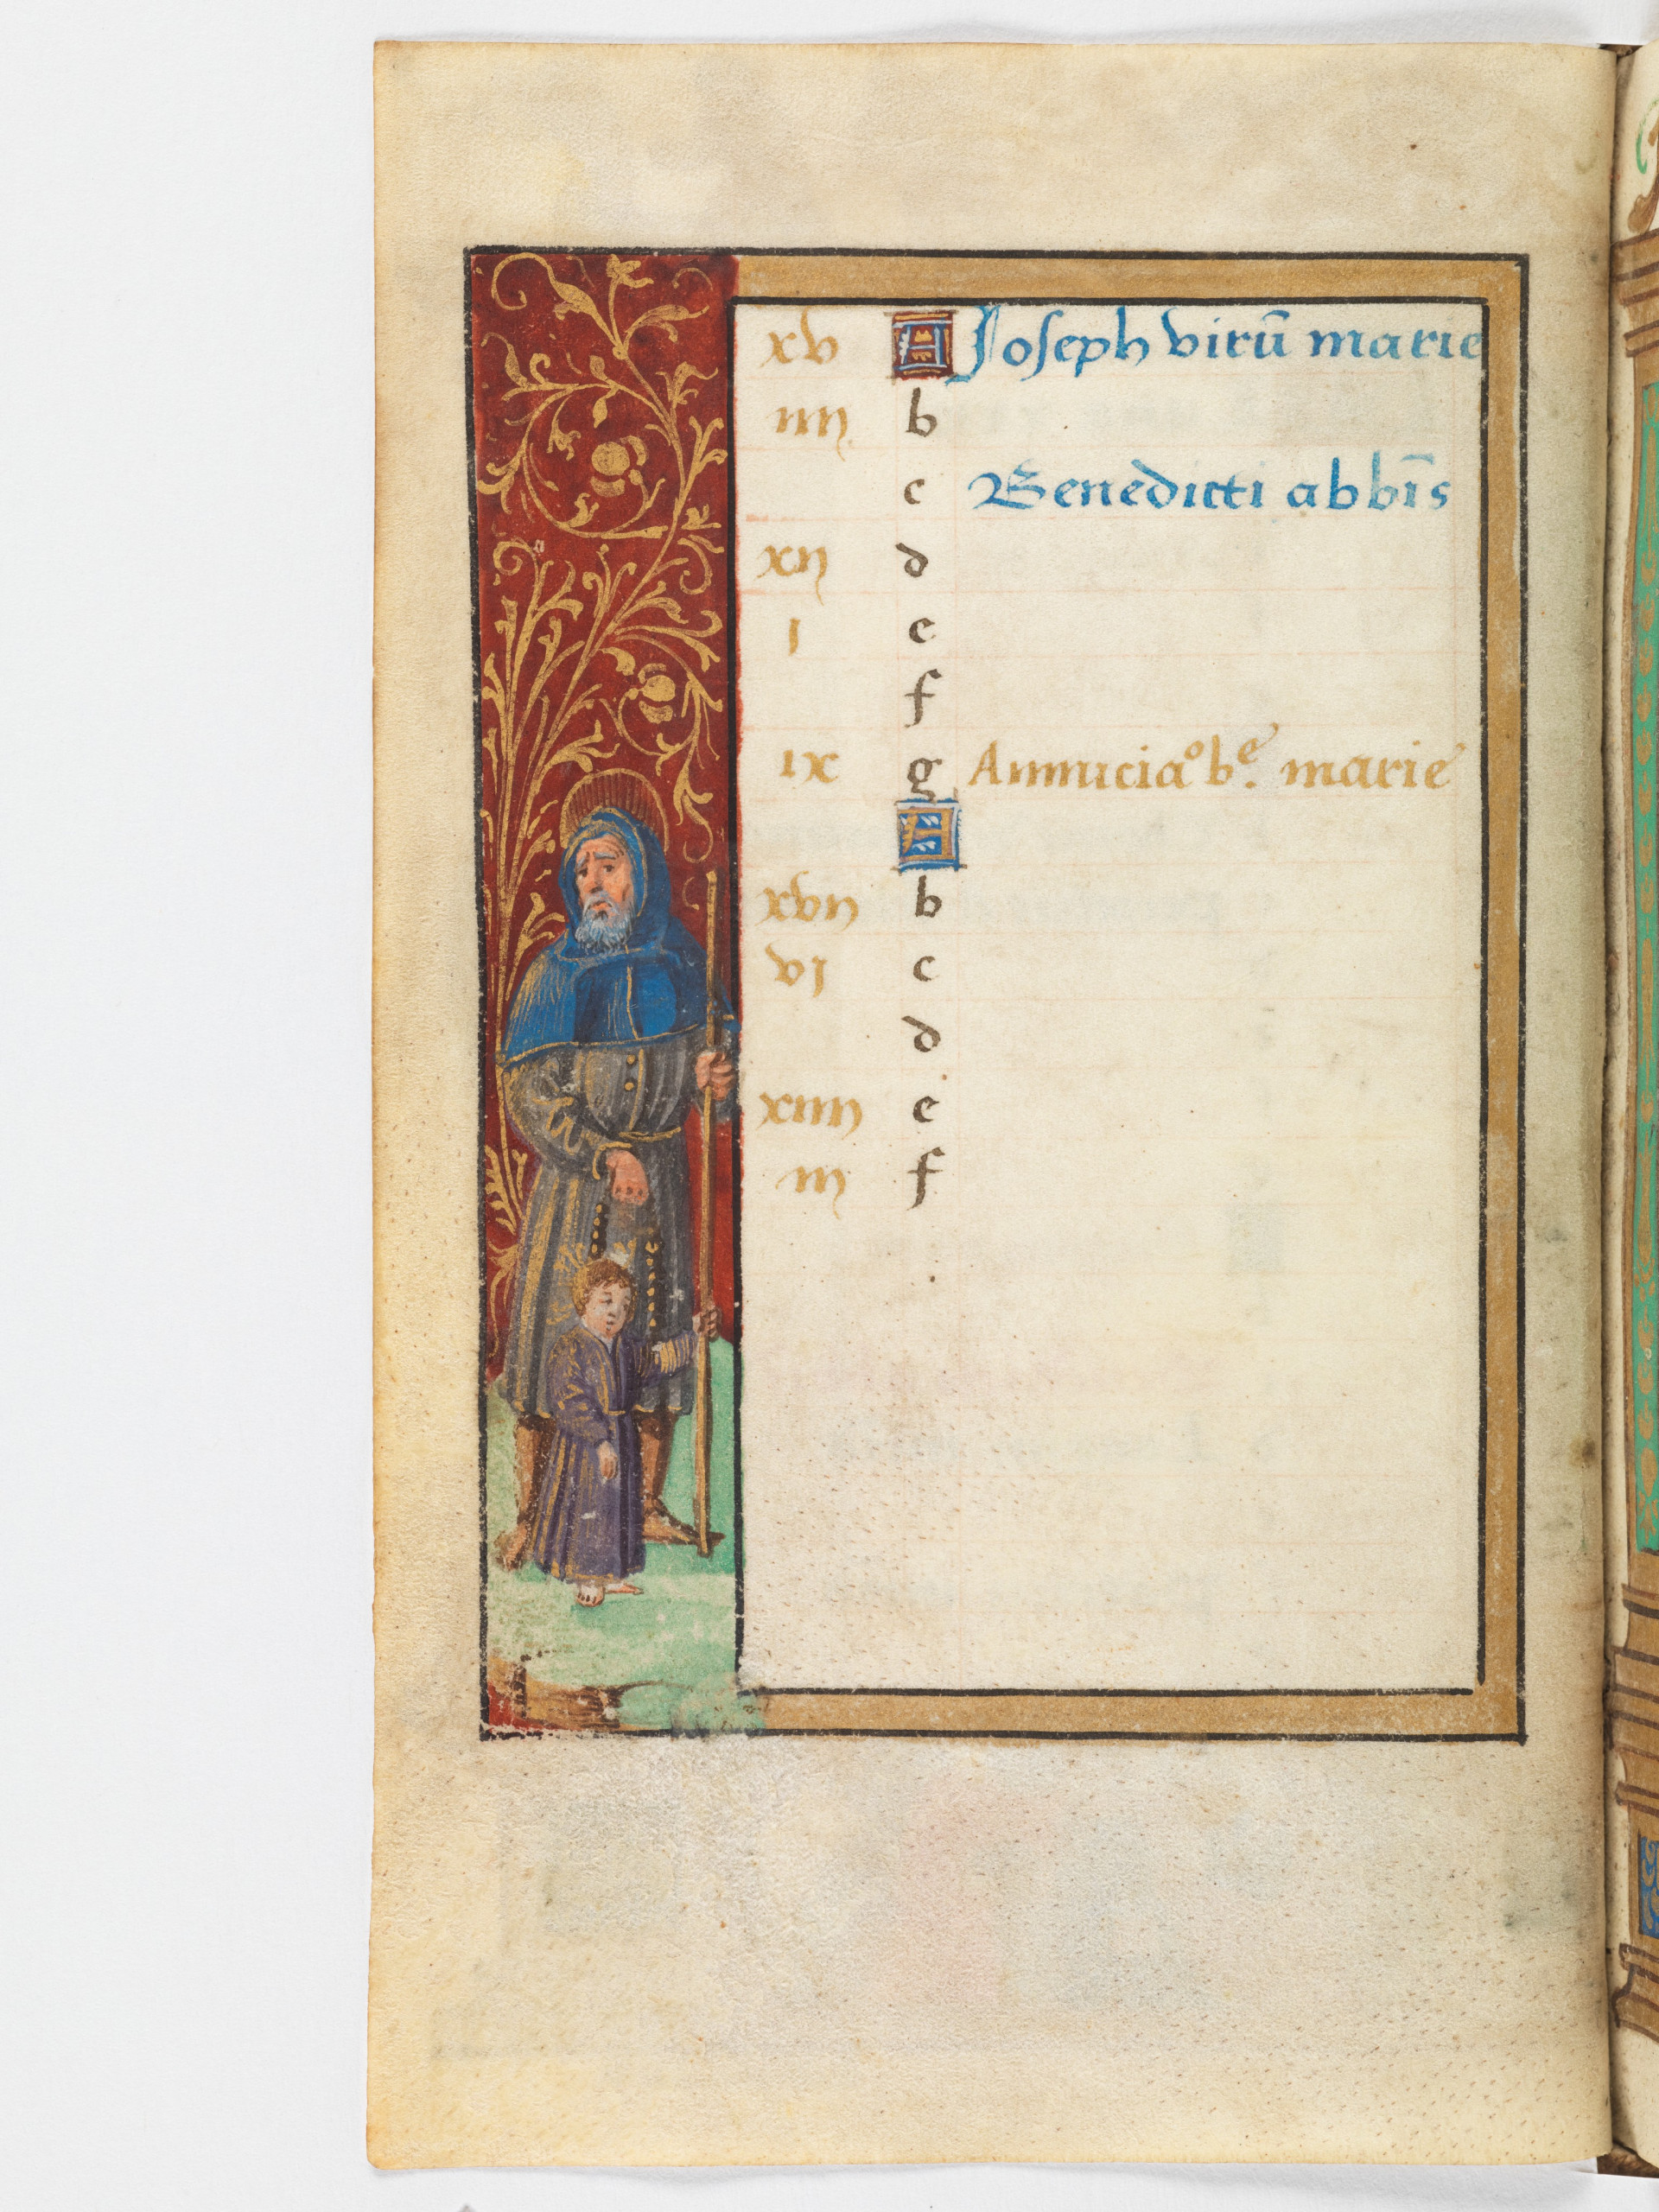 xv A Joseph virū marie
iiij b
c Benedicti abbīs
xij d
j e
f
ix g Annuciaº bᵉ. marie
A
xvij b
vj c
d
xiiij e
iij f